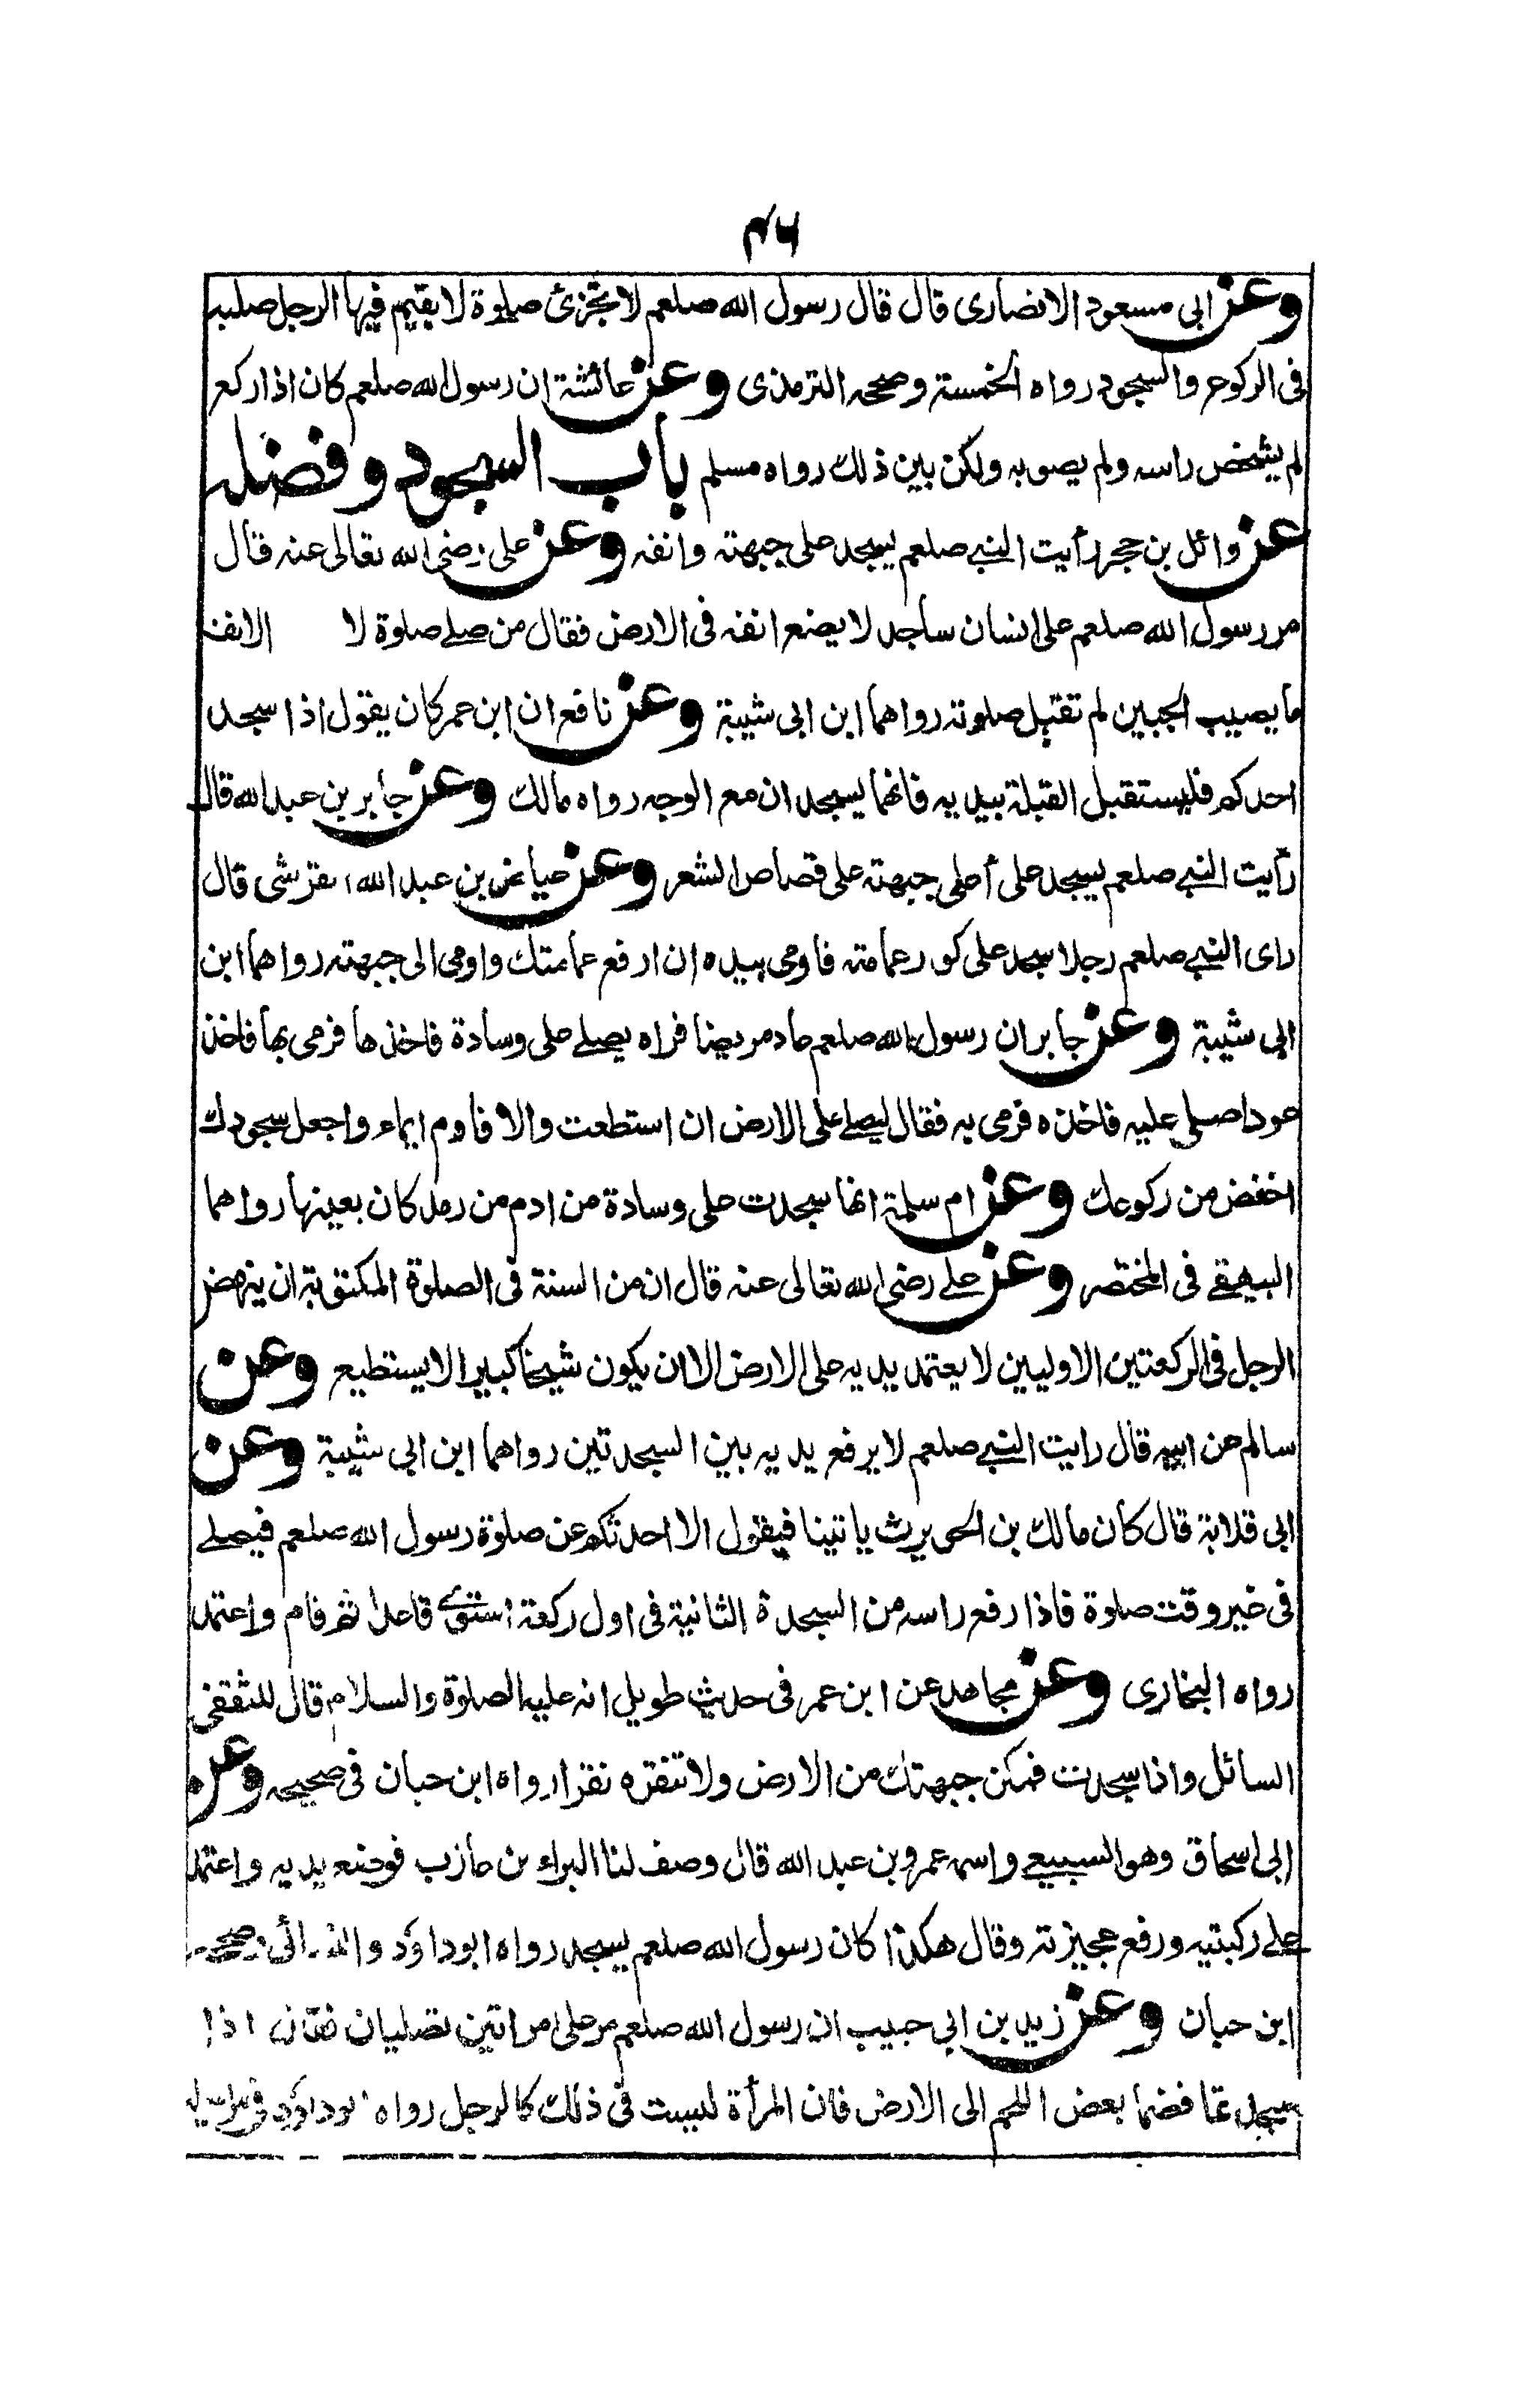 ۴۶
وعن ابى مسعود الانصارى قال قال رسول الله صلعم لا تجزئ صلوة لا يقيم فيها الرجل صلبه
فى الركوع والسجود رواه الخمسة وصححه الترمذى وعن عائشة ان رسول الله صلعم كان اذا ركع
لم يشخص راسه ولم يصوبه ولكن بين ذلك رواه مسلم باب السجود وفضله
عن وائل بن حجر رأيت النبى صلعم يسجد على جبهته وانفه وعن على رضى الله تعالى عنه قال
مر رسول الله صلعم على انسان ساجد لا يضع انفه فى الارض فقال من صلے صلوة لا الانف
ما يصيب الجبين لم تقبل صلوته رواهما ابن ابى شيبة وعن نافع ان ابن عمر كان يقول اذا سجد
احدكم فليستقبل القبلة بيديه فانهما يسجدان مع الوجه رواه مالك وعن جابر بن عبد الله قال
رأيت النبى صلعم يسجد على أعلى جبهته على قصاص الشعر وعن عياض بن عبد الله القرشى قال
راى النبى صلعم رجلا سجد على كور عمامته فاومى بيده ان ارفع عمامتك واومى الى جبهته رواهما ابن
ابى شيبة وعن جابر ان رسول الله صلعم عاد مريضا فراه يصلے على وسادة فاخذها فرمى بها فاخذ
عودا صلى عليه فاخذه فرمى به فقال ليصلے على الارض ان استطعت والا فاوم ايماء واجعل سجودك
اخفض من ركوعك وعن ام سلمة انها سجدت على وسادة من ادم من رمد كان بعينها رواهما
البيهقے فى المختصر وعن علے رضى الله تعالى عنه قال ان من السنة فى الصلوة المكتوبة ان ينهض
الرجل فى الركعتين الاوليين لا يعتمد يديه على الارض الا ان يكون شيخا كبيرا لا يستطيع وعن
سالم عن ابيه قال رايت النبى صلعم لا يرفع يديه بين السجدتين رواهما ابن ابى شيبة وعن
ابى قلابة قال كان مالك بن الحويرث ياتينا فيقول الا احدثكم عن صلوة رسول الله صلعم فيصلے
فى غير وقت صلوة فاذا رفع راسه من السجدة الثانية فى اول ركعة استوے قاعدا ثم قام واعتمد
رواه البخارى وعن مجاهد عن ابن عمر فى حديث طويل انه عليه الصلوة والسلام قال للثقفى
السائل واذا سجدت فمكن جبهتك من الارض ولا تنقره نقرا رواه ابن حبان فى صحيحه وعن
ابى اسحاق وهو السبيعے واسمه عمرو بن عبد الله قال وصف لنا البراء بن عازب فوضع يديه واعتمد
علے ركبتيه ورفع عجيزته وقال هكذا كان رسول الله صلعم يسجد رواه ابو داؤد والنسائى وصححه
ابن حبان وعن زيد بن ابى حبيب ان رسول الله صلعم مر على امراتين تصليان فقال اذا
سجدتما فضما بعض اللحم الى الارض فان المرأة ليست فى ذلك كالرجل رواه ابو داؤد فى مراسيله